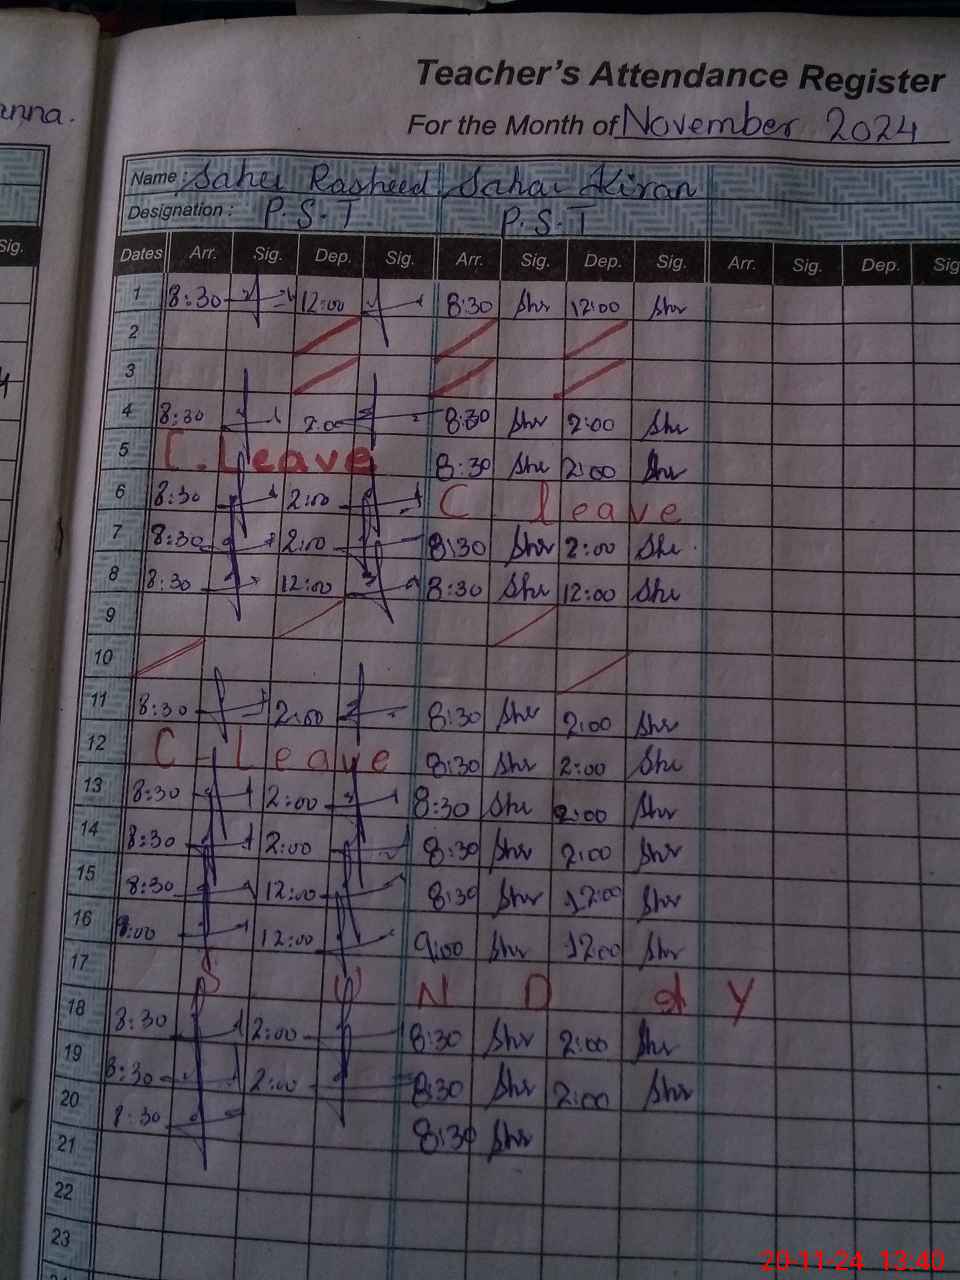 anna.
Teacher's Attendance Register
For the Month of November 2024
Name : Saher Rasheed Sahar Kiran
Designation : P.S.T P.S.T
Sig.
Dates Arr. Sig. Dep. Sig. Arr. Sig. Dep. Sig. Arr. Sig. Dep. Sig
1 8:30 12:00 8:30 Shr 12:00 Shr
2
3
4 8:30 2:00 8:30 Shr 2:00 Shr
5 C. Leave 8:30 Shr 2:00 Shr
6 8:30 2:00 C. leave
7 8:30 2:00 8:30 Shr 2:00 Shr
8 8:30 12:00 8:30 Shr 12:00 Shr
9
10
11 8:30 2:00 8:30 Shr 2:00 Shr
12 C - Leave 8:30 Shr 2:00 Shr
13 8:30 2:00 8:30 Shr 2:00 Shr
14 8:30 2:00 8:30 Shr 2:00 Shr
15 8:30 12:00 8:30 Shr 12:00 Shr
16 9:00 12:00 9:00 Shr 12:00 Shr
17 S U N D a Y
18 8:30 2:00 8:30 Shr 2:00 Shr
19 8:30 2:00 8:30 Shr 2:00 Shr
20 8:30 8:30 Shr
21
22
23
20-11-24 13:40